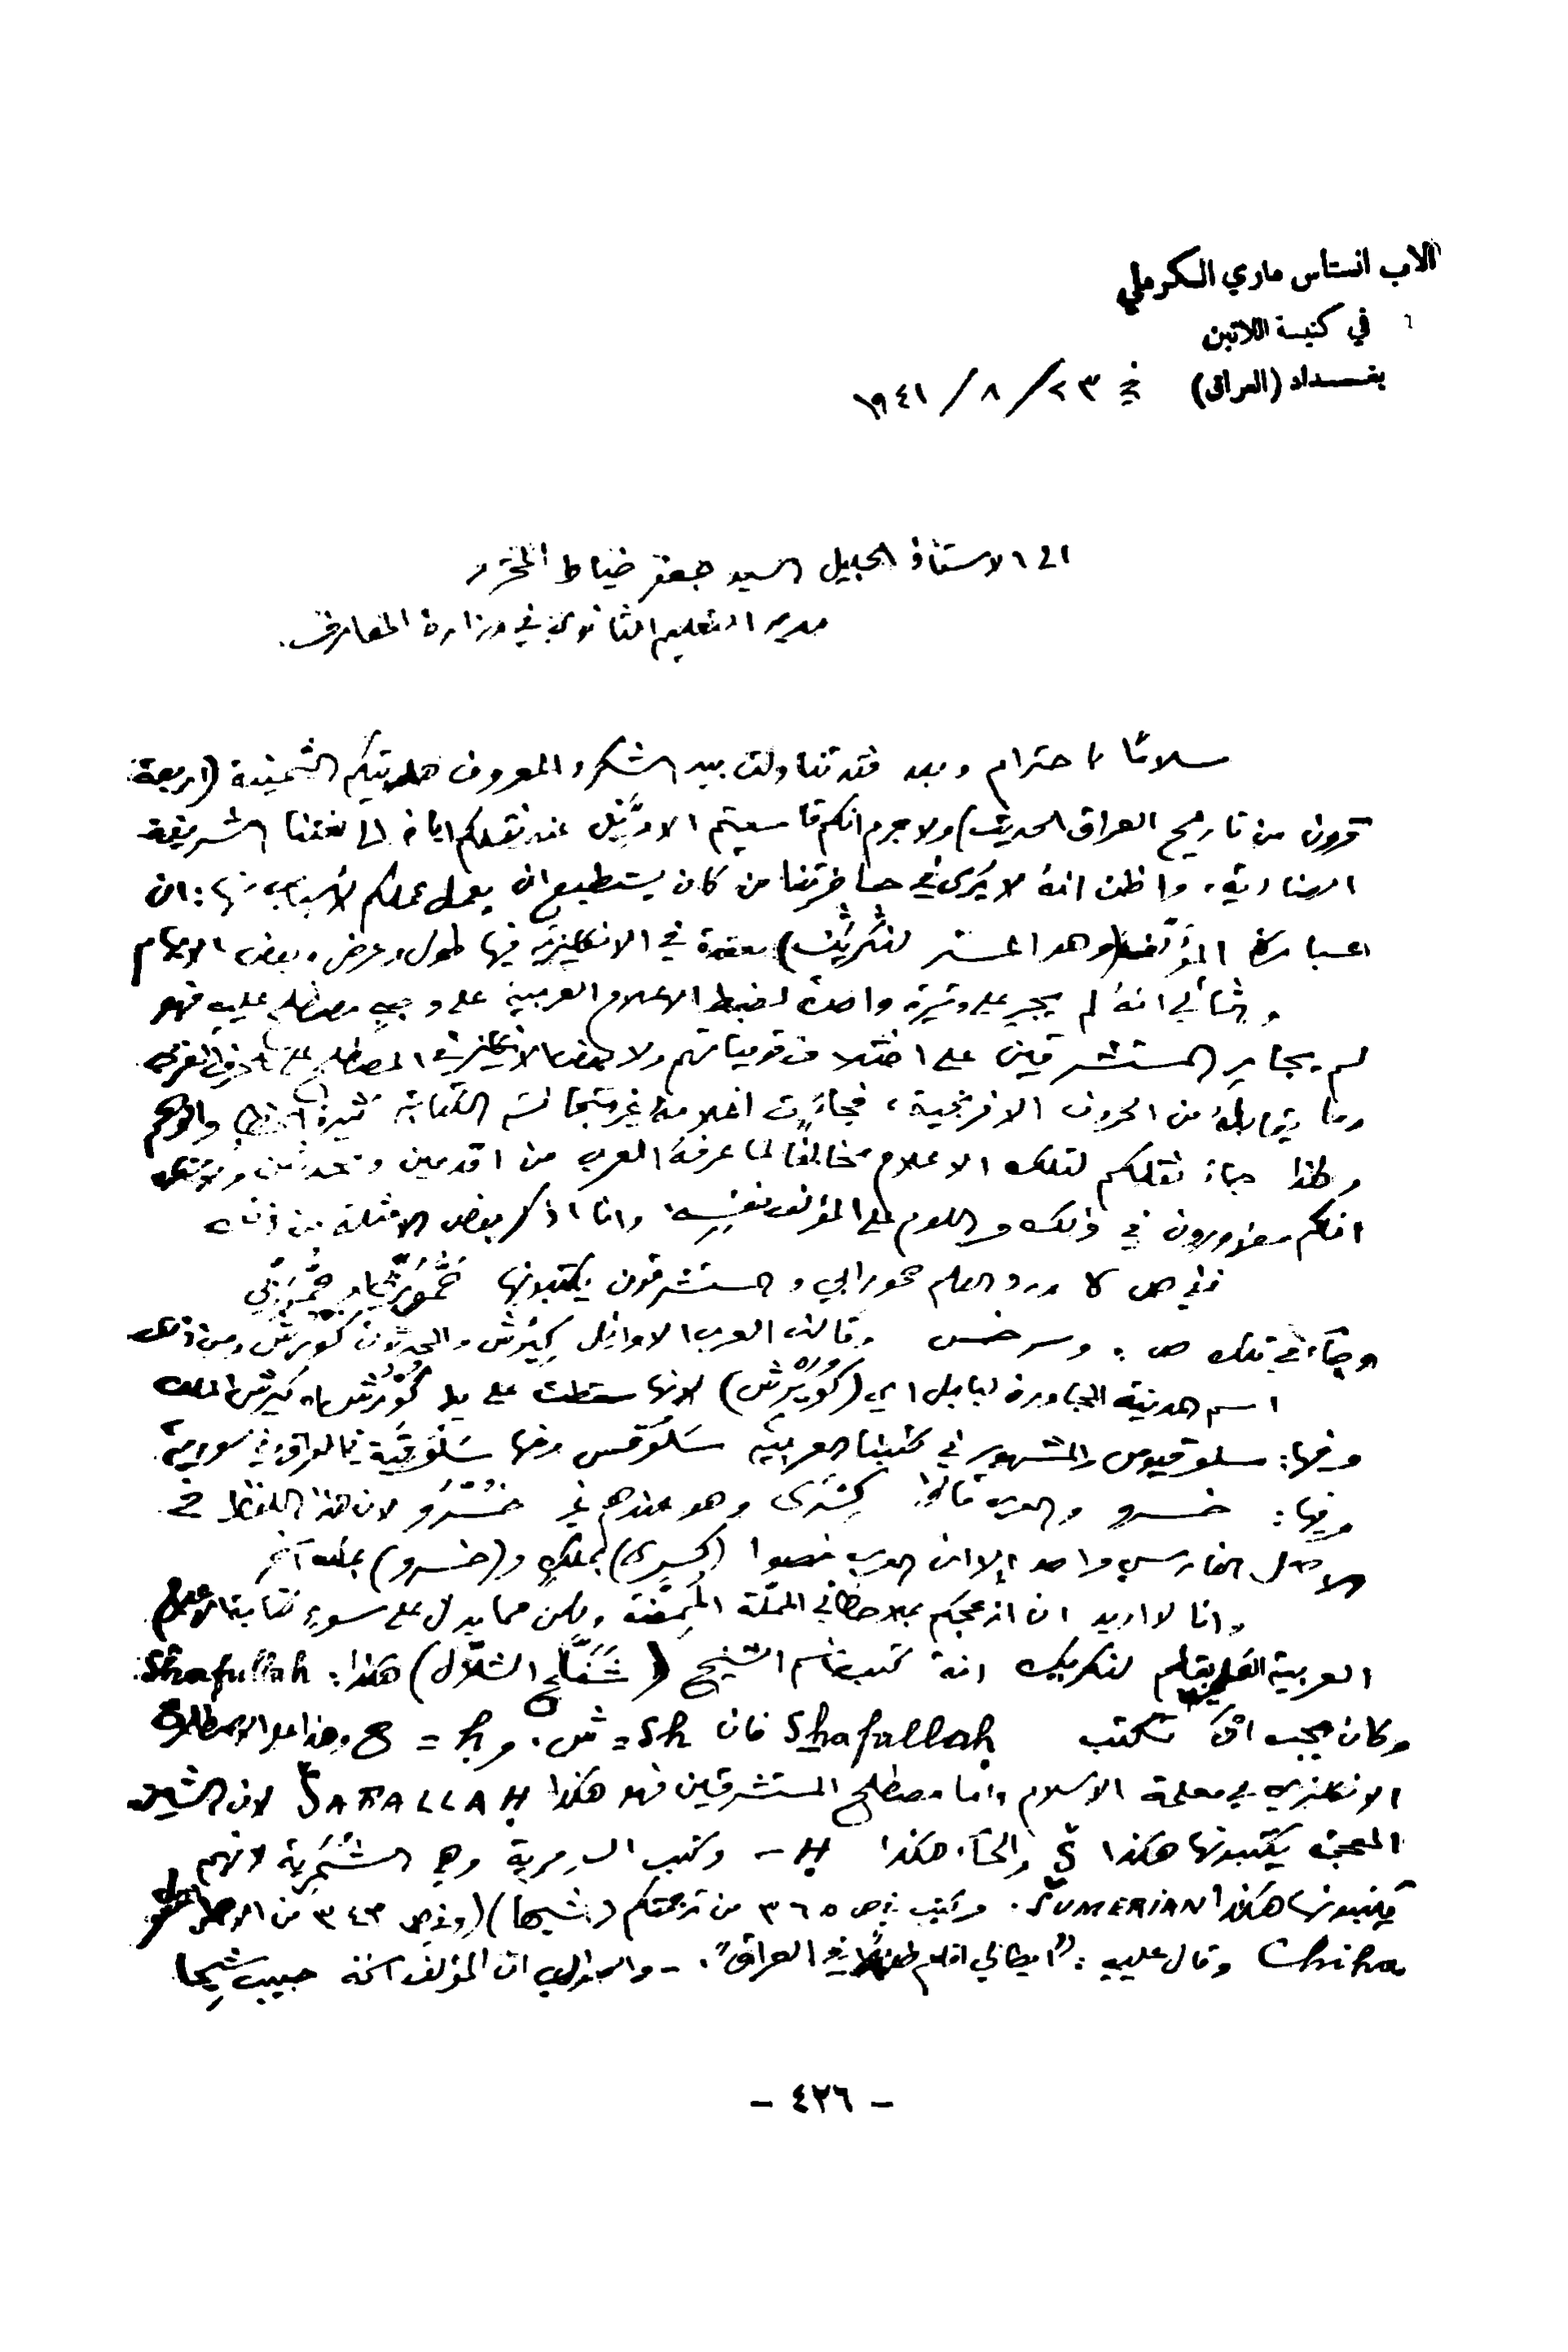 الاب انستاس ماري الكرملي
في كنيسة اللاتين
بغداد (العراق) في ٢٣ / ٨ / ١٩٤١
الى الاستاذ الجليل السيد جعفر خياط المحترم
مدير التعليم الثانوي في وزارة المعارف.
سلامًا باحترام وبعد فقد تناولت بيد الشكر والمعروف هديتكم الثمينة (اربعة
قرون من تاريخ العراق الحديث) ولا جرم انكم قاسيتم الامرَّين عند نقلكم اياه الى لغتنا الشريفة
الضادية، واظن انهُ لا يُرى في حاضرتنا من كان يستطيع ان يعمل عملكم لأسباب منها: ان
عبارة المؤلف (وهو المستر لنكريك) معقدة في الانكليزية فيها طول وعرض وبعض الابهام
والثاني انهُ لم يجرِ على وتيرة واحدة لضبط الاعلام العربية على وجهٍ مصطلح عليهِ فهو
لم يجارِ المستشرقين على اختلاف قومياتهم ولا الانكليز في المصطلح على الحرف العربي
وما يقابلهُ من الحروف الافرنجية، فجاءَت اعلامهُ غير متجانسة الكتابة كثيرة الخطإ والوهم
ولهذا جاءَ نقلكم لتلك الاعلام مخالفًا لما عرفهُ العرب من اقدمين ومحدثين
انكم معذورون في ذلك واللوم على المؤلف نفسِه، وانا اذكر بعض الامثلة من ذلك
ففي ص ورد العلم حمورابي والمستشرقون يكتبونها
وجاءَ في تلك ص: وسرخس وقالت العرب الاوائل كِيرُش والمحدثون كُورُش ومن ذلك
اسم المدينة المجاورة لبابل اي (كُويْرِش) لانها سقطت على يد كُورُش او كيرش الملك
وفيها: سلوقيوس والمشهور في كتبنا العربية سَلُوقُس ومنها سَلُوقيَّة في العراق وفي سورية
وفيها: خسرو والعرب قالوا كِسْرَى وهو عندهم غير خُسْرُو لان هذا اللفظ في
الاصل الفارسي واحد إلا ان العرب خصوا (كسرى) بملكٍ و(خسرو) بملك آخر
وانا لا اريد ان ازعجكم بملاحظاتي المملَّة المُمِضَّة ولكن مما يدل على سوءِ كتابة الاعلام
العربية بقلم لنكريك انهُ كتب اسم الشيخ (شَفَلَّح الشلَّال) هكذا: Shafullah
وكان يجب ان تكتب Shafallaḥ فان Sh = ش. و ḥ = ح وهذا هو الاصطلاح
الانكليزي في معلمة الاسلام واما مصطلح المستشرقين فهو هكذا ŠAFALLAḤ لان الشين
المعجمة يكتبونها هكذا Š والحاء هكذا Ḥ - وكتب السومرية وهي الشُّمَرية لانهم
يكتبونها هكذا ŠUMERIAN. وكتب في ص ٣٦٥ من ترجمتكم (شيحا) (وفي ص ٣٤٣ من الاصل
Chiha وقال عليهِ: "ايطالي اقام طويلًا في العراق". - والصواب ان المؤلف اسمهُ حبيب شِيحا
- ٤٢٦ -